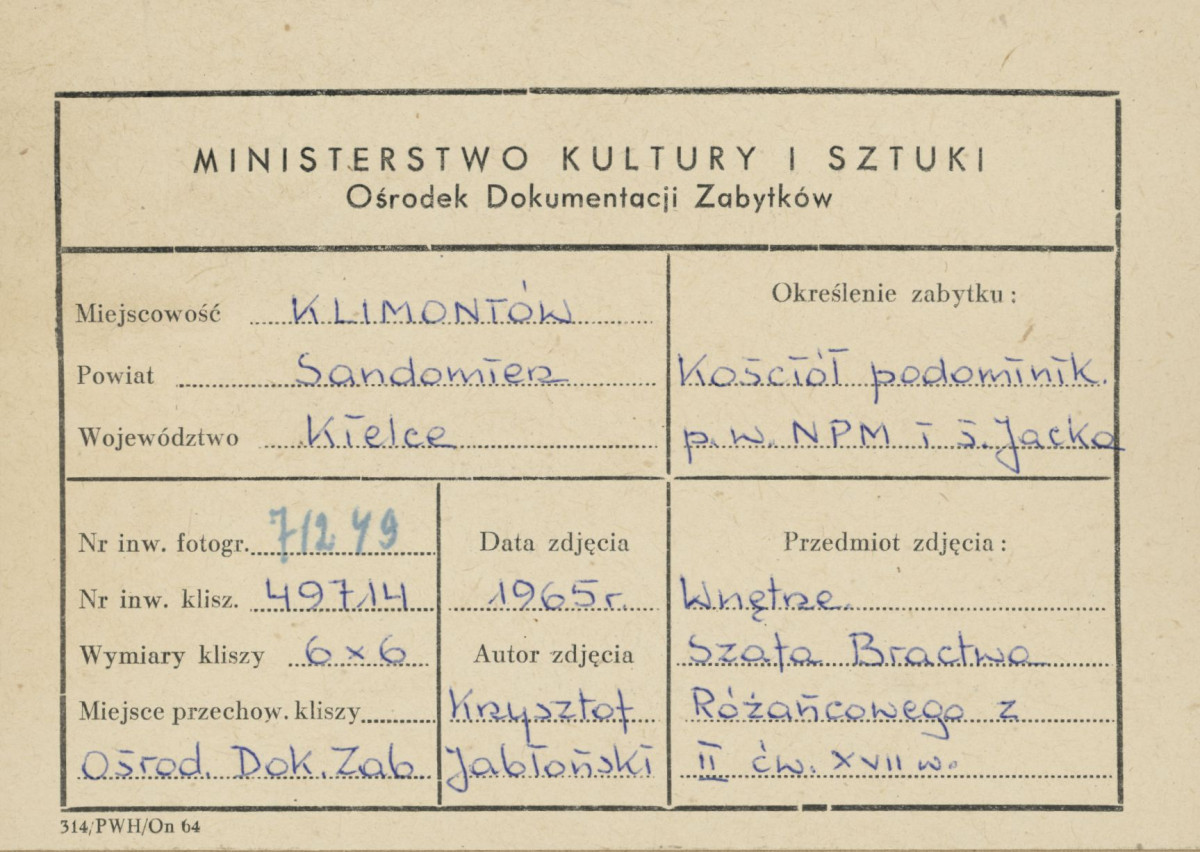 MINISTERSTWO KULTURY I SZTUKI
Ośrodek Dokumentacji Zabytków
Miejscowość KLIMONTÓW
Powiat Sandomierz
Województwo Kielce
Określenie zabytku:
Kościół podominik.
p.w. NPM i ś. Jacka
Nr inw. fotogr. 71249
Nr inw. klisz. 49714
Wymiary kliszy 6 x 6
Miejsce przechow. kliszy
Ośrod. Dok. Zab
Data zdjęcia
1965r.
Autor zdjęcia
Krzysztof
Jabłoński
Przedmiot zdjęcia:
Wnętrze.
Szafa Bractwa
Różańcowego z
II ćw. XVII w.
314/PWH/On 64